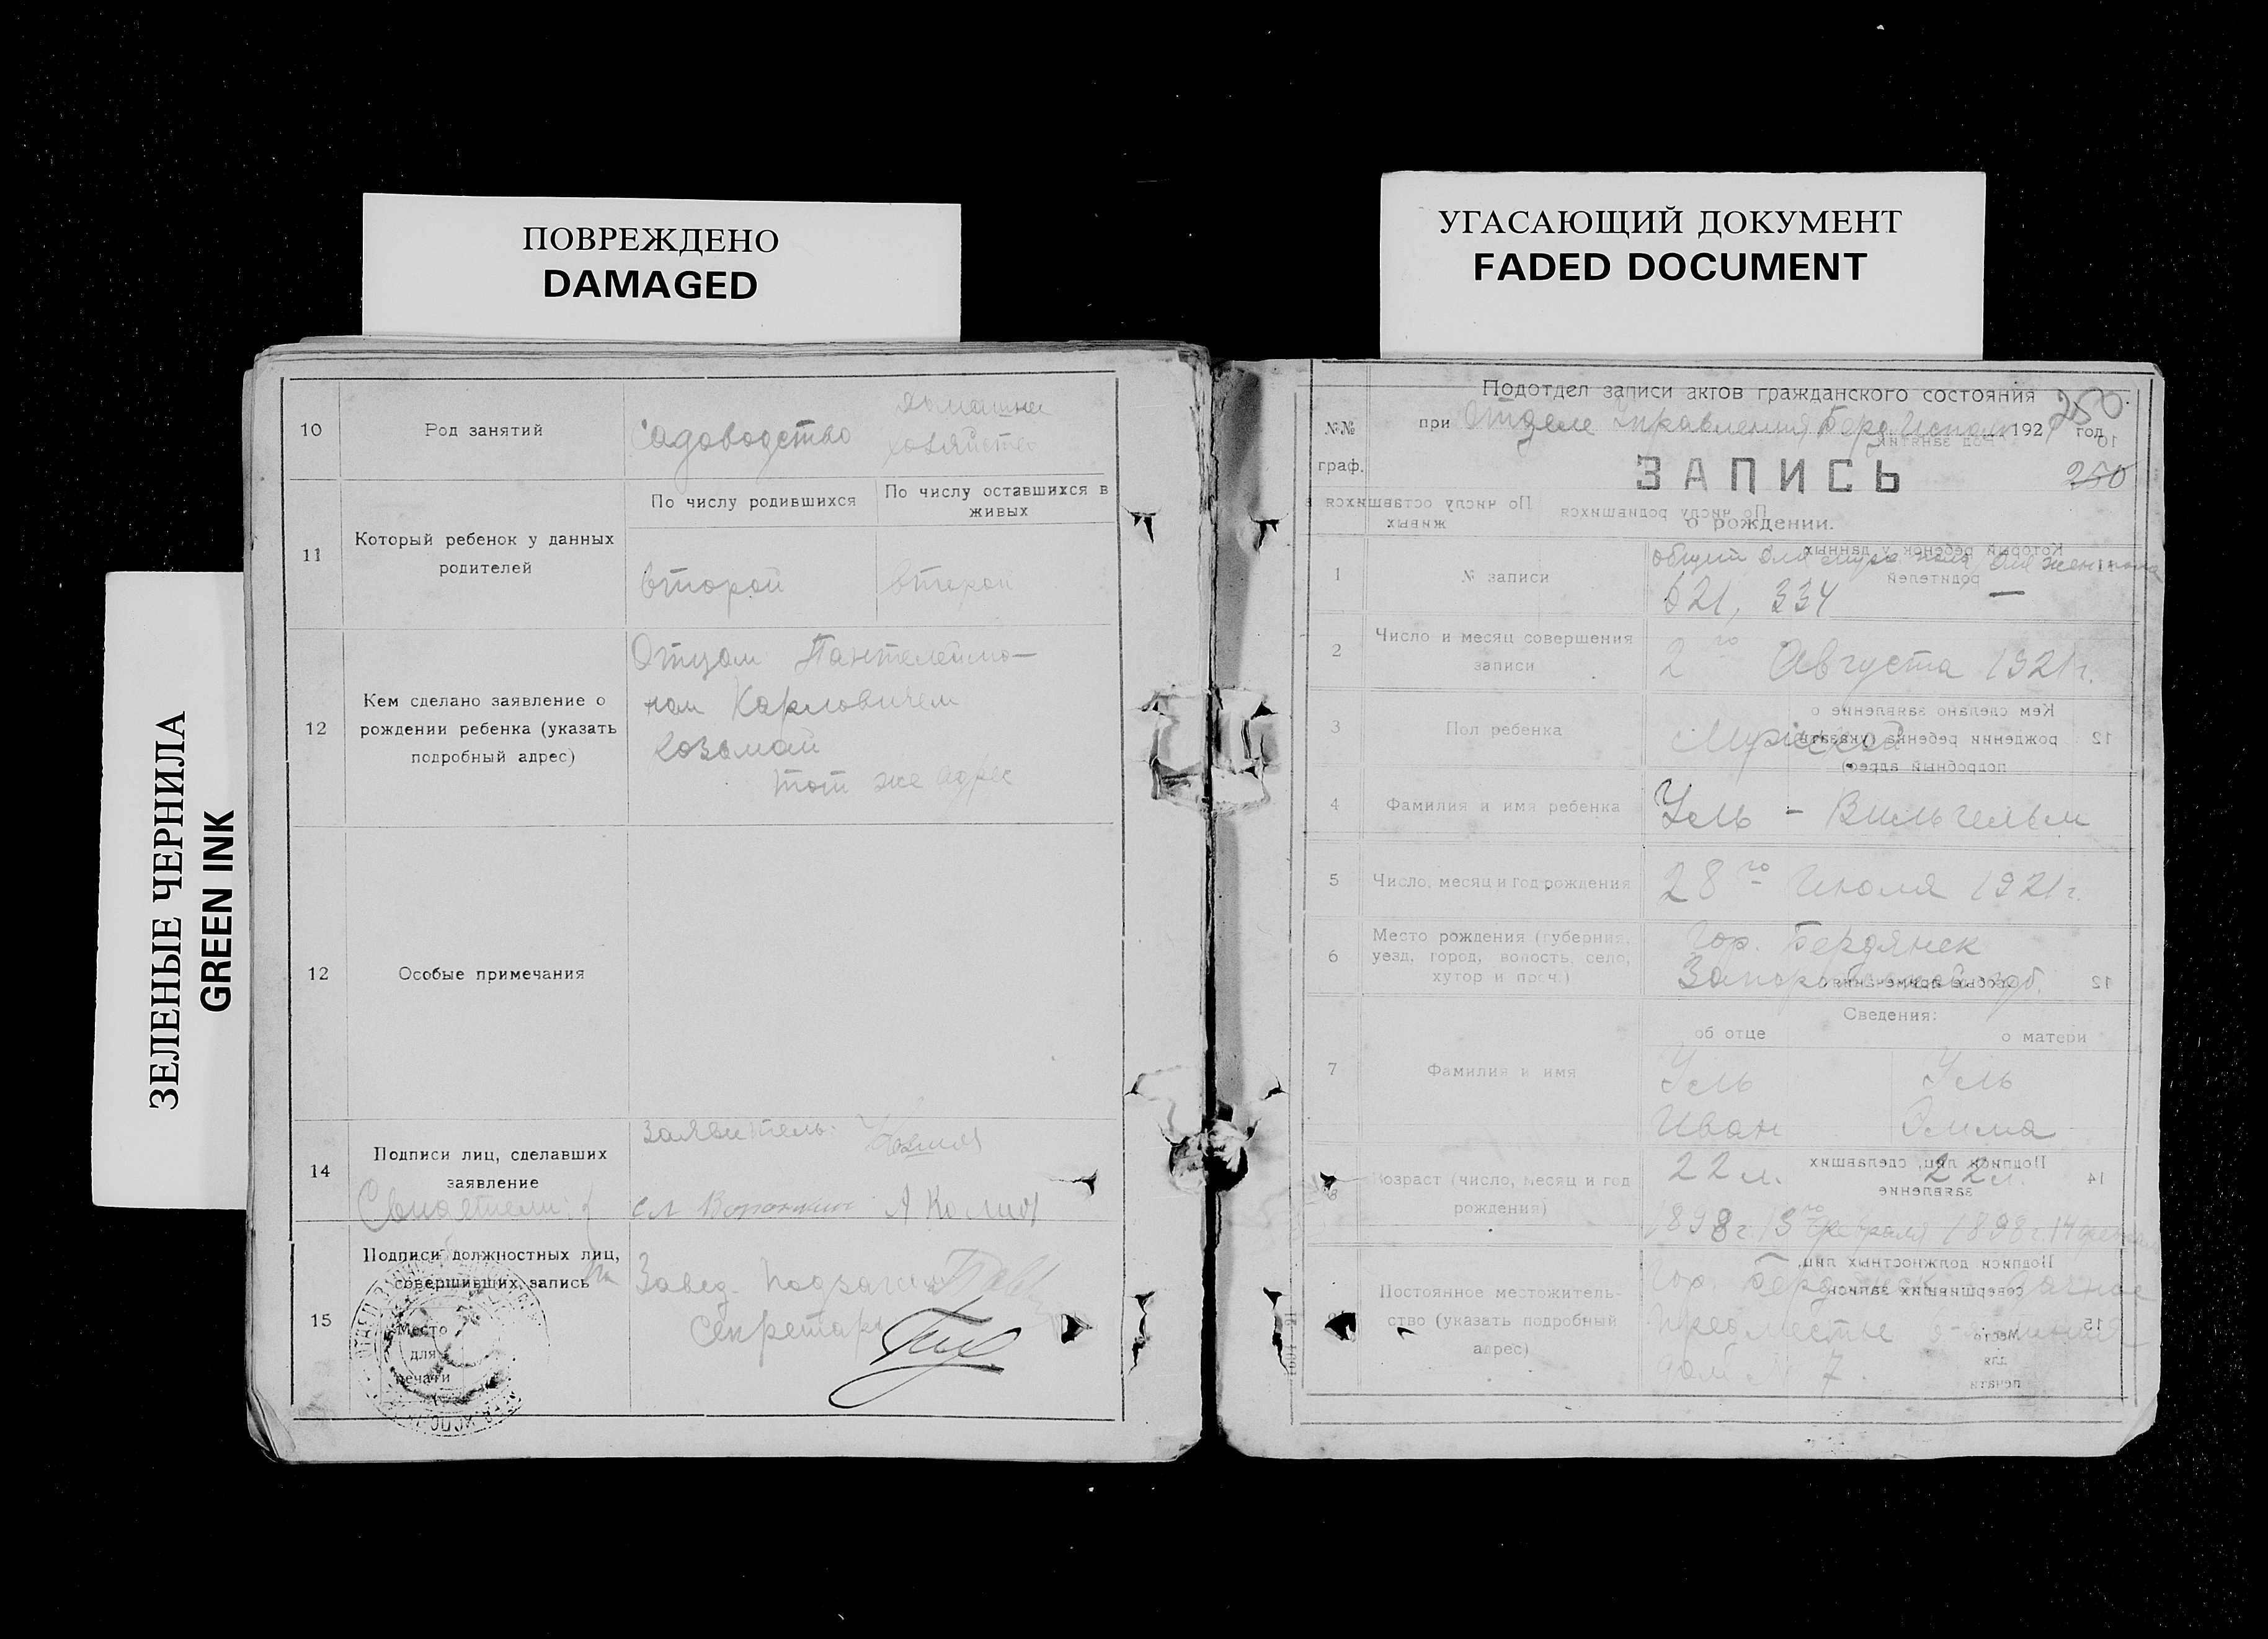 ПОВРЕЖДЕНО
DAMAGED
УГАСАЮЩИЙ ДОКУМЕНТ
FADED DOCUMENT
ЗЕЛЕНЫЕ ЧЕРНИЛА
GREEN INK
10
Род занятий
садоводство
домашнее
хозяйство
11
Который ребенок у данных
родителей
По числу родившихся
По числу оставшихся в
живых
второй
второй
12
Кем сделано заявление о
рождении ребенка (указать
подробный адрес)
Отцом Пантелеймо-
ном Карловичем
Козьмой
тот же адрес
12
Особые примечания
14
Подписи лиц, сделавших
заявление
Заявитель:
Свидетели:
15
Подписи должностных лиц,
совершивших запись
Место
для
печати
Завед.
Секретарь
Подотдел записи актов гражданского состояния
250
№№
граф.
при Отделе Управления Берд. Исполк. 192 год
ЗАПИСЬ
250
о рождении.
1
№ записи
общий для муж. пола, для жен. пола
621, 334 —
2
Число и месяц совершения
записи
2го Августа 1921 г.
3
Пол ребенка
Мужской
4
Фамилия и имя ребенка
Уль - Вильгельм
5
Число, месяц и год рождения
28го Июля 1921 г.
6
Место рождения (губерния,
уезд, город, волость, село,
хутор и проч.)
Гор. Бердянск
Запорожской губ.
Сведения:
об отце
о матери
7
Фамилия и имя
Уль
Иван
Уль
Эмма
8
Возраст (число, месяц и год
рождения)
22 л.
22 л.
1898 г. 13го февраля
1898 г. 14
Постоянное местожитель-
ство (указать подробный
адрес)
Гор. Бердянск
предместье
дом № 7.